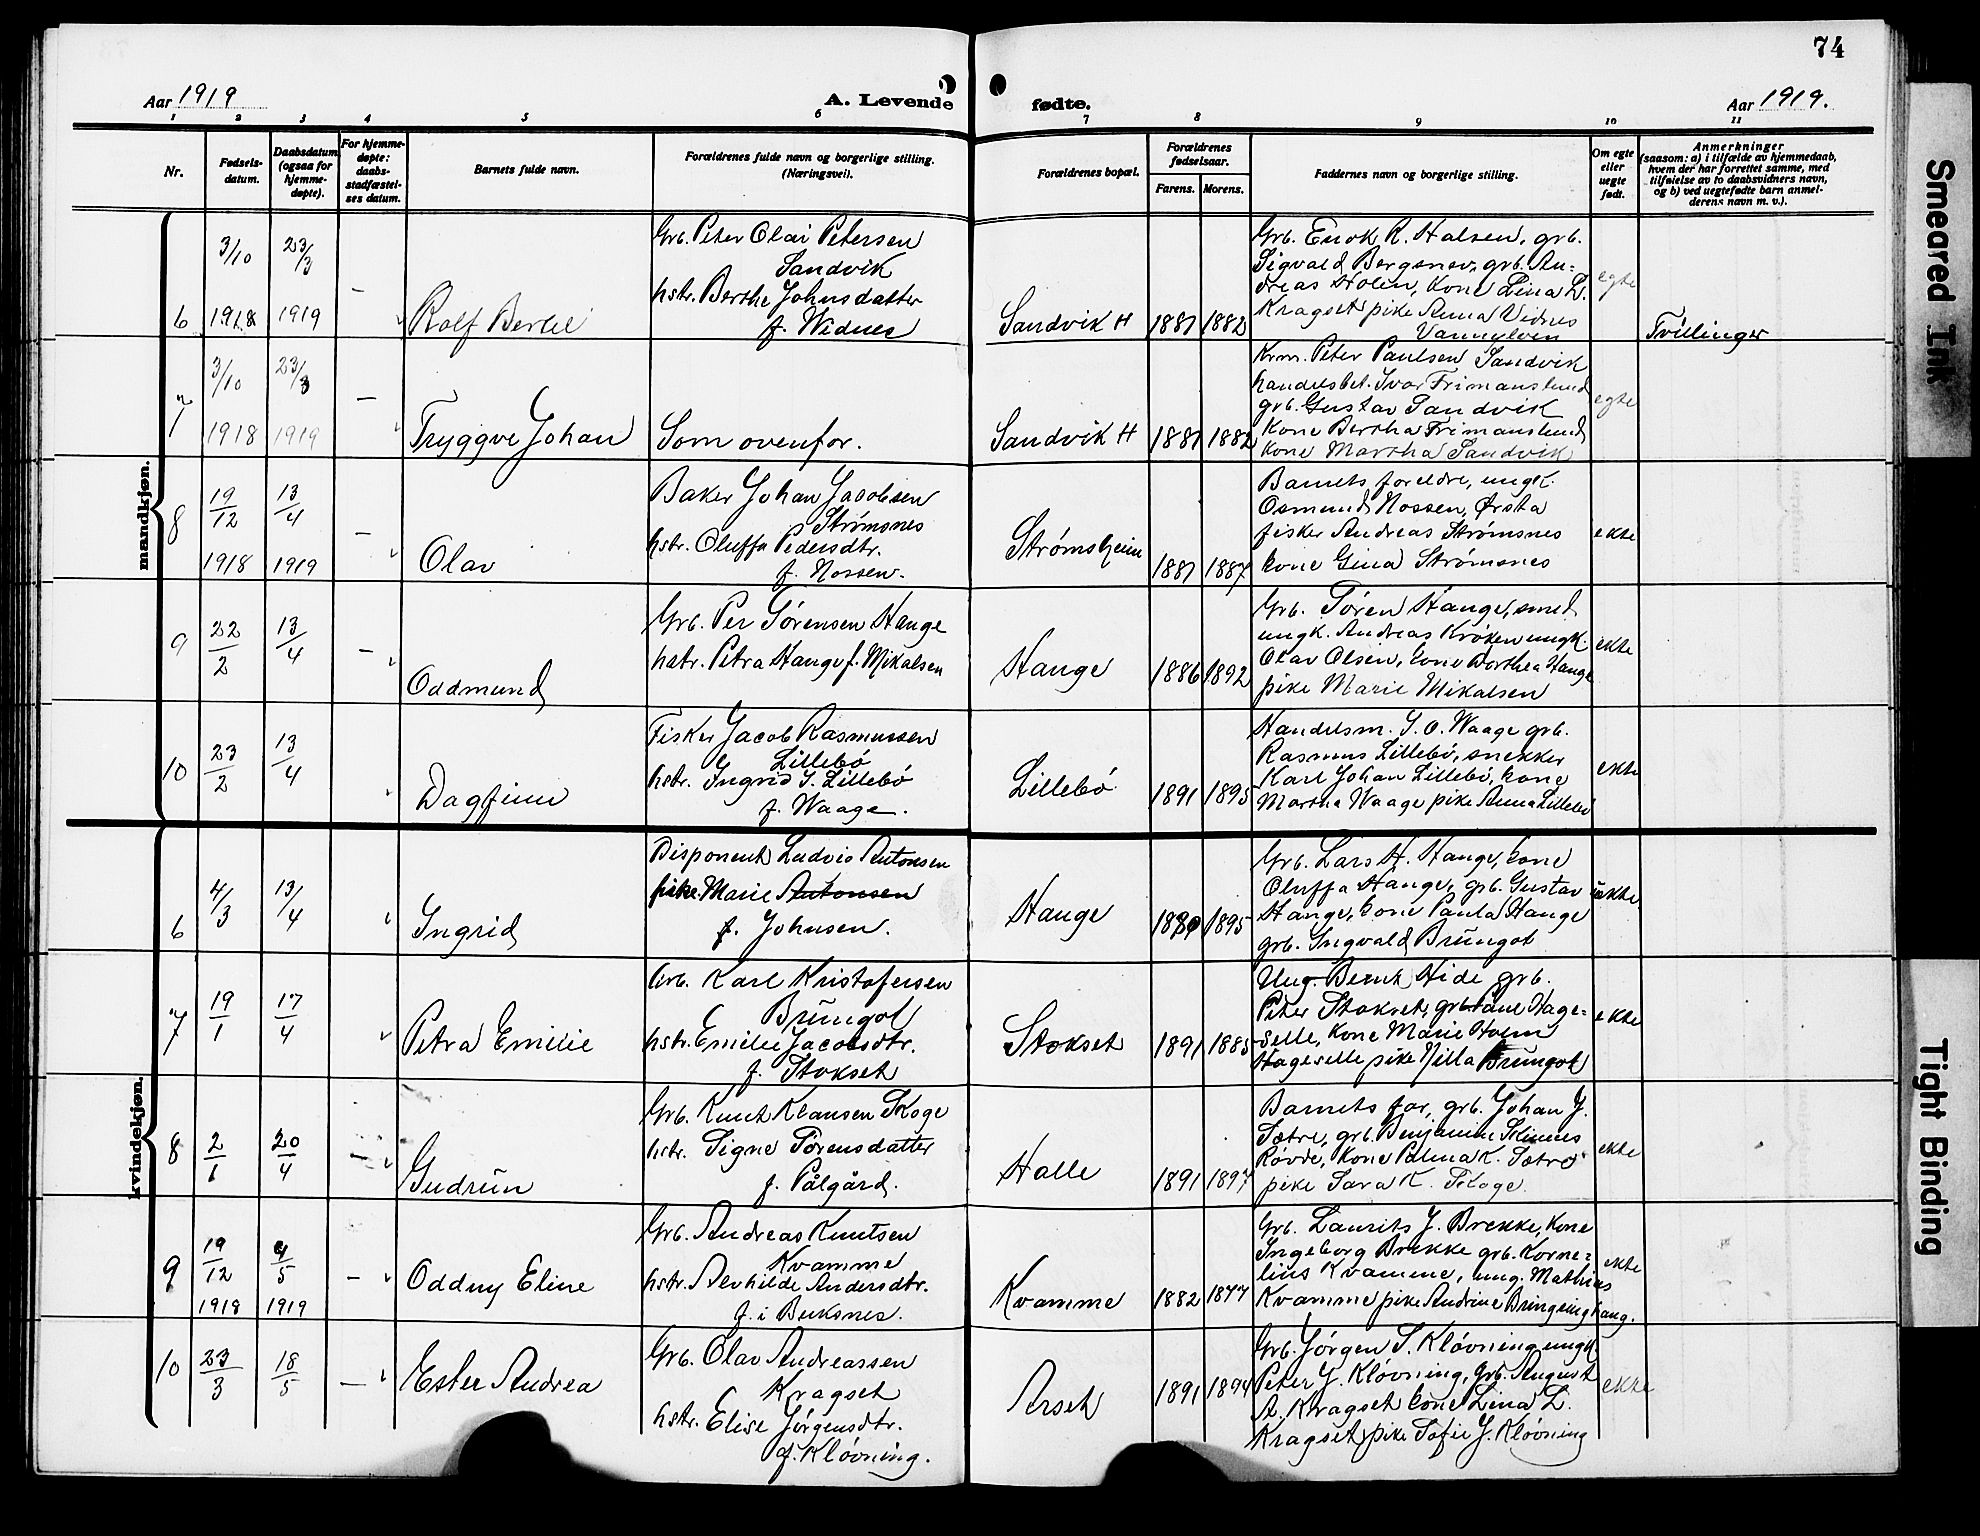 74
Aar 1919
A. Levende fødte.
Aar 1919.
1 2 3 4 5 6 7 8 9 10 11
Nr.
Fødsels-
datum.
Daabsdatum
(ogsaa for
hjemme-
døpte).
For hjemme-
døpte:
daabs-
stadfæstel-
ses datum.
Barnets fulde navn.
Forældrenes fulde navn og borgerlige stilling.
(Næringsvei).
Forældrenes bopæl.
Forældrenes
fødselsaar.
Farens. Morens.
Faddernes navn og borgerlige stilling.
Om egte
eller
uegte
født.
Anmerkninger
(saasom: a) i tilfælde av hjemmedaab,
hvem der har forrettet samme, med
tilføielse av to daabsvidners navn,
og b) ved uegtefødte barn anmel-
derens navn m. v.).
mandkjøn.
6
3/10
1918
23/3
1919
—
Rolf Bertel
Grb. Peter Olai Petersen
Sandvik
hstr. Berthe Johnsdatter
f. Widnes
Sandvik H
1881 1882
Grb. Enok R. Halsen, grb.
Sigvald Bergsnev, grb. An-
dreas Holen, kone Lina L.
Kragset pike Anna Vidnes
Vannylven
egte
Tvillinger
7
3/10
1918
23/3
1919
—
Tryggve Johan
Som ovenfor.
Sandvik H
1881 1882
Krm. Peter Paulsen Sandvik
handelsbet. Ivar Frimanslund
grb. Gustav Sandvik
Kone Bertha Frimanslund
kone Martha Sandvik
egte
8
19/12
1918
13/4
1919
—
Olav
Baker Johan Jacobsen
Strømsnes
hstr. Oluffa Pedersdtr.
f. Nossen.
Strømsheim
1881 1887
Barnets foreldre, ungk.
Osmund Nossen, Ørsta
fisker Andreas Strømsnes
kone Gina Strømsnes
ekte
9
22/2
13/4
—
Oddmund
Grb. Per Sørensen Hauge
hstr. Petra Hauge f. Mikalsen
Hauge
1886 1892
Grb. Søren Hauge, smed
ungk. Andreas Krøken ungk.
Olav Olsen, kone Dorthea Hauge
pike Marie Mikalsen
ekte
10
23/2
13/4
Dagfinn
Fisker Jacob Rasmussen
Lillebø
hstr. Ingrid S. Lillebø
f. Waage.
Lillebø
1891 1895
Handelsm. S. O. Waage grb.
Rasmus Lillebø, snekker
Karl Johan Lillebø, kone
Martha Waage pike Anna Lillebø
ekte
kvindekjøn.
6
4/3
13/4
Ingrid
Disponent Ludvig Antonsen
pike Marie Antonsen
f. Johnsen.
Hauge
1895
Grb. Lars H. Hauge, kone
Oluffa Hauge, grb. Gustav
Hauge, kone Paula Hauge
grb. Ingvald Brŭngot
uekte
7
19/1
17/4
Petra Emilie
Arb. Karl Kristofersen
Brŭngot
hstr. Emilie Jacobsdtr.
f. Stokset
Stokset
1891 1885
Ung. Bernt Hide grb.
Peter Stokset, grb. Paul Hage-
selle, kone Marie Holm
Hageselle pike Nilla Brŭngot
ekte
8
2/1
20/4
—
Gudrŭn
Grb. Knut Klausen Skoge
hstr. Signe Sørensdatter
f. Pålgård.
Halle
1891 1897
Barnets far, grb. Johan J.
Sætre, grb. Benjamin
Røvde, kone Palma K. Sætre
pike Sara K. Skoge
ekte
9
19/12
1918
4/5
1919
—
Oddny Eline
Grb. Andreas Knutsen
Kvamme
hstr. Alvhilde Andersdtr.
f. i Buksnes.
Kvamme
1882 1877
Grb. Laurits J. Brekke, kone
Ingeborg Brekke grb. Korne-
lius Kvamme, ung. Mathias
Kvamme pike Andrine Bringsinghaug.
ekte
10
23/3
18/5
—
Ester Andrea
Grb. Olav Andreassen
Kragset
hstr. Elise Jørgensdtr.
f. Kløvning.
Årset
1891 1894
Grb. Jørgen S. Kløvning ungk.
Peter J. Kløvning, Grb. August
A. Kragset kone Lina L.
Kragset, pike Sofie J. Kløvning
ekte
Smeared Ink
Tight Binding